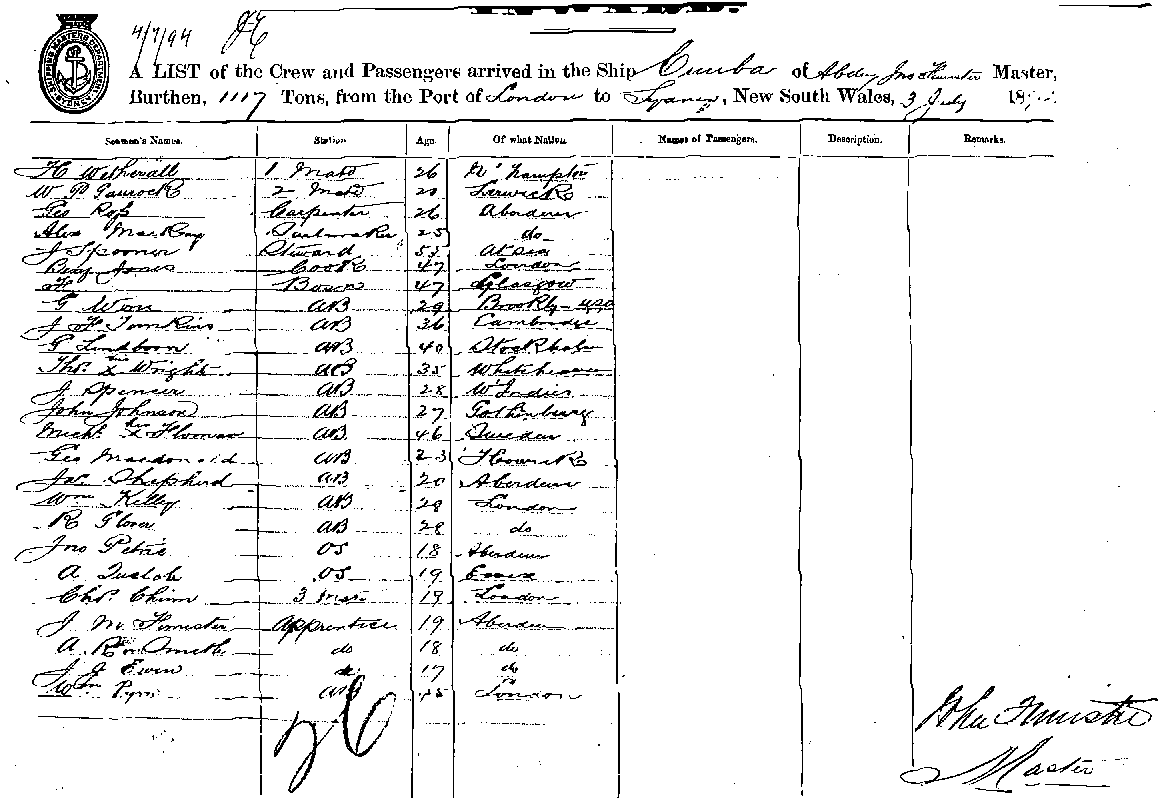 4/7/94
SHIPPING MASTERS DEPARTMENT SYDNEY
A LIST of the Crew and Passengers arrived in the Ship of Master,
Burthen, 1117 Tons, from the Port of London to Sydney, New South Wales, 3 July 189
Seamen's Names. Station Age. Of what Nation. Names of Passengers. Description. Remarks.
H Wetherall 1 Mate 26 N'hampton
W P 2 Mate Lerwick
Geo Ross Carpenter 26 Aberdeen
Alex MacKay Sailmaker 25 do
J Spooner Steward 55 At Sea
Benj Jones Cook 47 London
Bosn 47 Glasgow
G AB 29 Brookly USA
J H Tomkins AB 36 Cambridge
G AB 40 Stockholm
Thos. his X Wright AB 35 Whitehaven
J Spencer AB 28 W Indies
John Johnson AB 27 Gothenburg
Michl. his X AB 46 Sweden
Geo Macdonald AB 23
Jas. Shepherd AB 20 Aberdeen
Wm Kelley AB 28 London
R Glover AB 28 do
Jno Petrie OS 18 Aberdeen
A OS 19 Essex
Chs. 3 Mate 19 London
J. M. Apprentice 19 Aberdeen
A. Smith do 18 do
J J Ewen do 17 do
Wm Pym AB London
John
Master